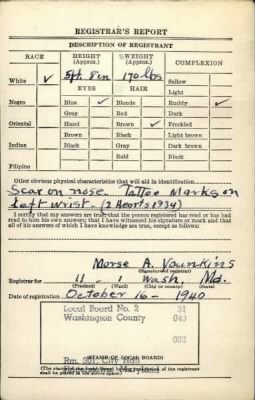 REGISTRAR'S REPORT
DESCRIPTION OF REGISTRANT
RACE HEIGHT (Approx.) WEIGHT (Approx.) COMPLEXION
White ✓ 5ft 8in 170 lbs Sallow
EYES HAIR Light
Negro Blue ✓ Blonde Ruddy ✓
Gray Red Dark
Oriental Hazel Brown ✓ Freckled
Brown Black Light brown
Indian Black Gray Dark brown
Bald Black
Filipino
Other obvious physical characteristics that will aid in identification
Scar on nose Tattoo Marks on
Left Wrist. (2 Hearts. 1934)
I certify that my answers are true; that the person registered has read or has had
read to him his own answers; that I have witnessed his signature or mark and that
all of his answers of which I have knowledge are true, except as follows:
Morse A. Younkins
(Signature of registrar)
Registrar for 11 - 1 Wash. Md.
(Precinct) (Ward) (City or county) (State)
Date of registration October 16 - 1940
Local Board No. 2 31
Washington County 043
002
Rm. 301, City Hall
(STAMP OF LOCAL BOARD)
Hagerstown, Maryland
shall be placed in the above space.)